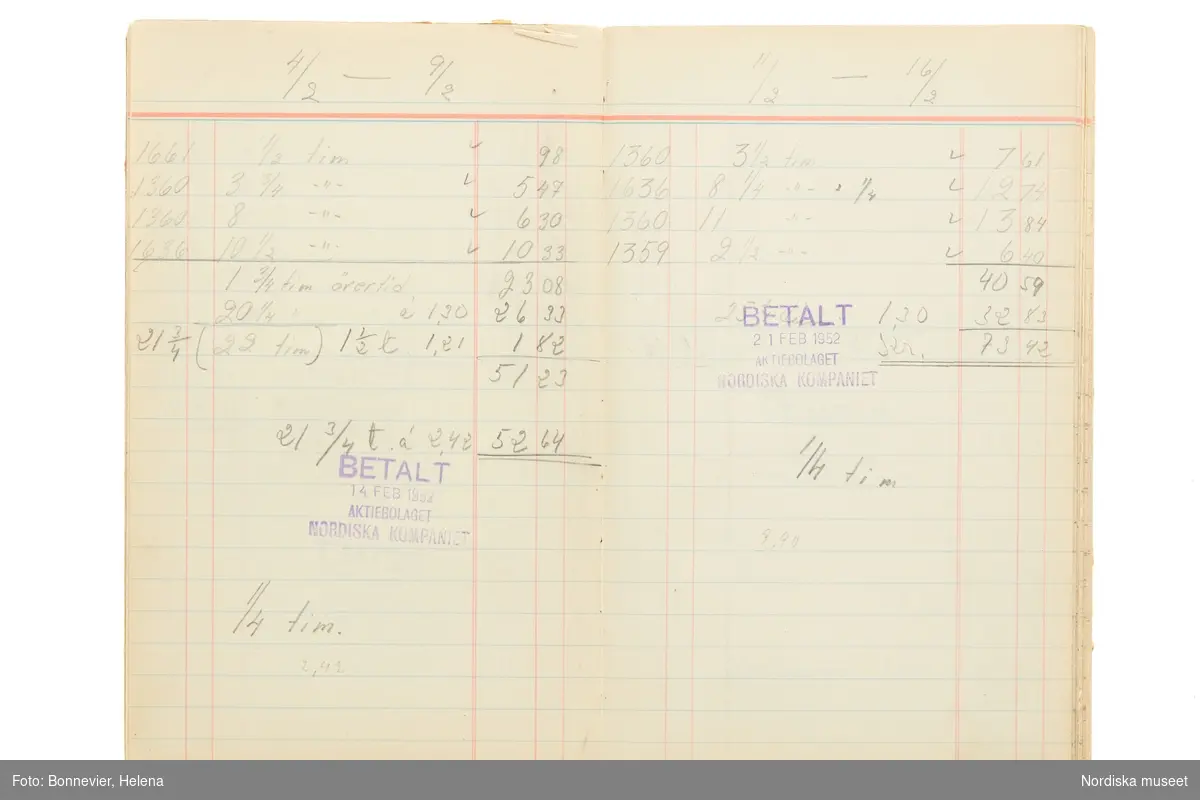 4/2 — 9/2
1661 1/2 tim ✓ 98
1360 3 3/4 -"- ✓ 5 47
1360 8 -"- ✓ 6 30
1636 10 1/2 -"- ✓ 10 33
1 3/4 tim övertid 23 08
20 1/4 " á 1,30 26 33
21 3/4 (22 tim) 1 1/2 t 1,21 1 82
51 23
21 3/4 t. á 2,42 52 64
BETALT
14 FEB 1952
AKTIEBOLAGET
NORDISKA KOMPANIET
1/4 tim.
2,42
11/2 — 16/2
1360 3 1/2 tim ✓ 7 61
1636 8 1/4 -"- ✓ 12 74
1360 11 -"- ✓ 13 84
1359 2 1/2 -"- ✓ 6 40
40 59
1,30 32 83
Kr. 73 42
BETALT
21 FEB 1952
AKTIEBOLAGET
NORDISKA KOMPANIET
1/4 tim
Foto: Bonnevier, Helena
Nordiska museet